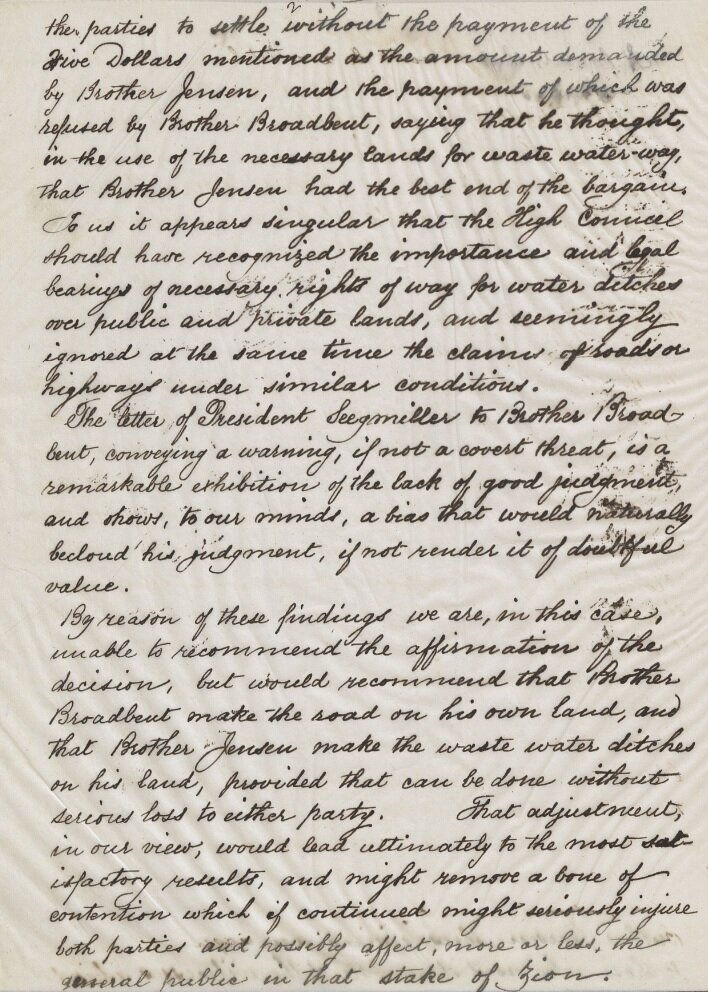 the parties to settle, without the payment of the
Five Dollars mentioned as the amount demanded
by Brother Jensen, and the payment of which was
refused by Brother Broadbent, saying that he thought,
in the use of the necessary lands for waste water-way,
that Brother Jensen had the best end of the bargain.
To us it appears singular that the High Council
should have recognized the importance and legal
bearings of necessary rights of way for water ditches
over public and private lands, and seemingly
ignored at the same time the claims of roads or
highways under similar conditions.
The letter of President Seegmiller to Brother Broad-
bent, conveying a warning, if not a covert threat, is a
remarkable exhibition of the lack of good judgment,
and shows, to our minds, a bias that would naturally
becloud his judgment, if not render it of doubtful
value.
By reason of these findings we are, in this case,
unable to recommend the affirmation of the
decision, but would recommend that Brother
Broadbent make the road on his own land, and
that Brother Jensen make the waste water ditches
on his land, provided that can be done without
serious loss to either party. That adjustment,
in our view, would lead ultimately to the most sat-
isfactory results, and might remove a bone of
contention which if continued might seriously injure
both parties and possibly affect, more or less, the
general public in that stake of Zion.